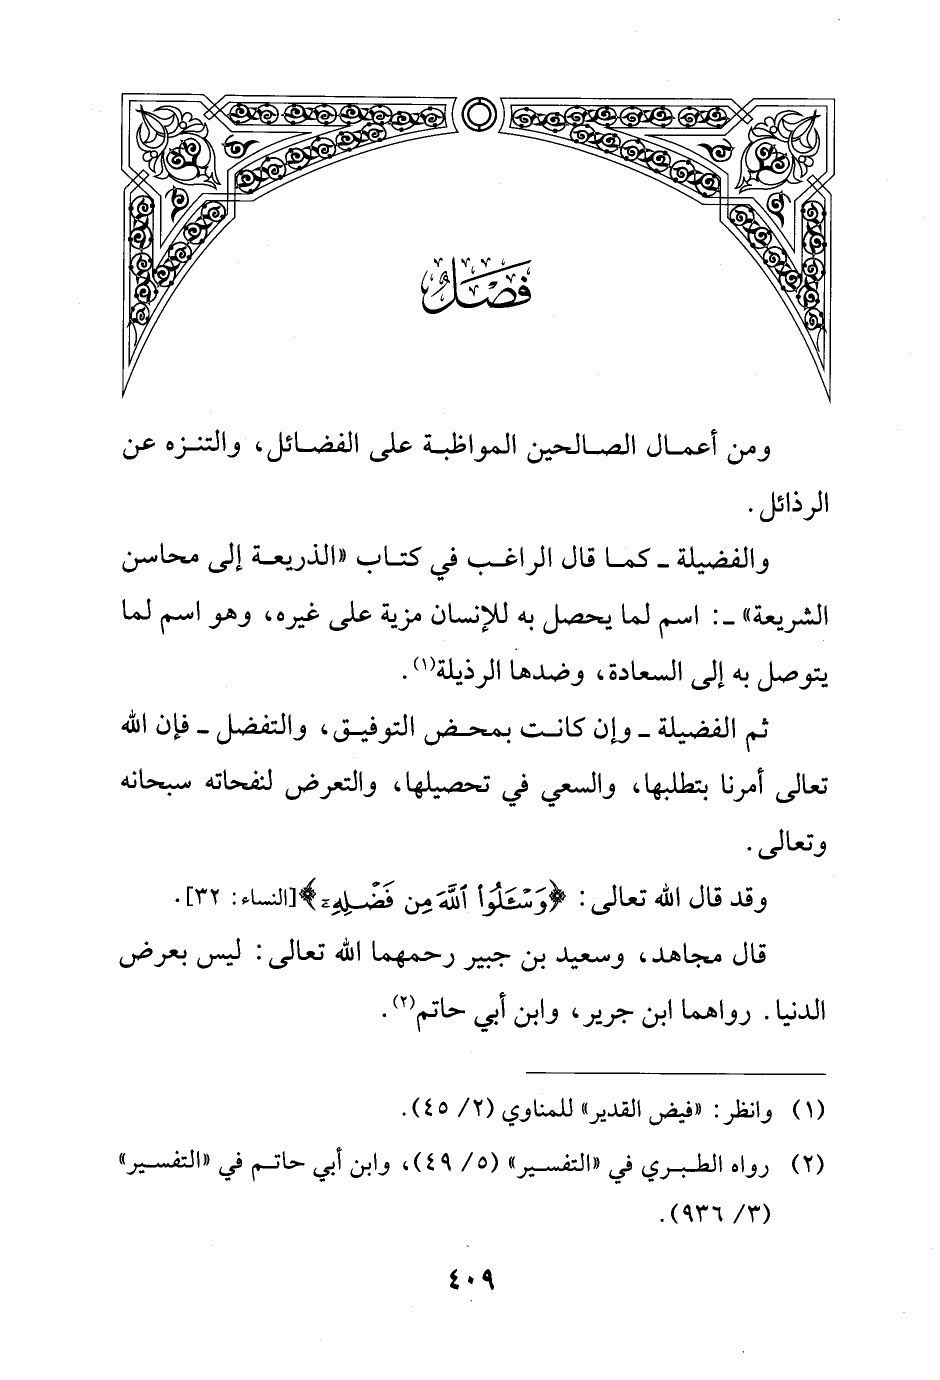 فَصْلٌ
ومن أعمال الصالحين المواظبة على الفضائل، والتنزه عن
الرذائل.
والفضيلة ـ كما قال الراغب في كتاب «الذريعة إلى محاسن
الشريعة» ـ: اسم لما يحصل به للإنسان مزية على غيره، وهو اسم لما
يتوصل به إلى السعادة، وضدها الرذيلة(١).
ثم الفضيلة ـ وإن كانت بمحض التوفيق، والتفضل ـ فإن الله
تعالى أمرنا بتطلبها، والسعي في تحصيلها، والتعرض لنفحاته سبحانه
وتعالى.
وقد قال الله تعالى: ﴿وَسْـَٔلُوا۟ ٱللَّهَ مِن فَضْلِهِۦٓ﴾[النساء: ٣٢].
قال مجاهد، وسعيد بن جبير رحمهما الله تعالى: ليس بعرض
الدنيا. رواهما ابن جرير، وابن أبي حاتم(٢).
(١) وانظر: «فيض القدير» للمناوي (٢/ ٤٥).
(٢) رواه الطبري في «التفسير» (٥/ ٤٩)، وابن أبي حاتم في «التفسير»
(٣/ ٩٣٦).
٤٠٩